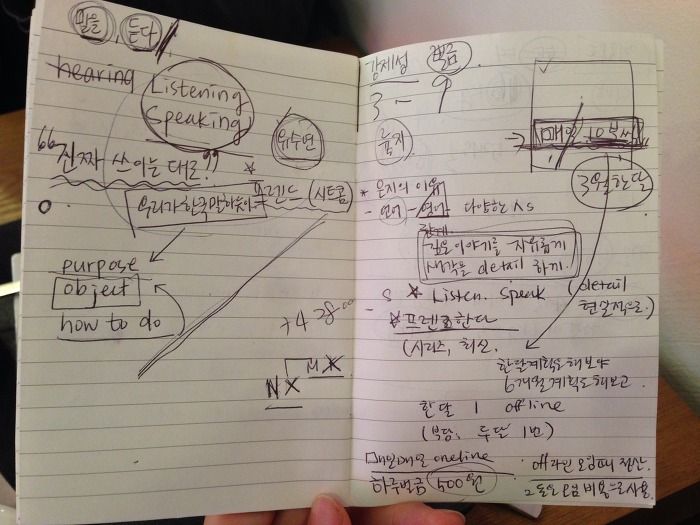 말을, 듣다
hearing
Listening
Speaking
유수연
"진짜 쓰이는 대로"??
* 프렌드 (시트콤)
우리가 한국말하듯이
purpose
object
how to do
+4 28
N X
강제성
벌금
3 - 9
매일 10분씩
3월 한달
* 은지의 이유
- 언어 - 영어 다양한 As
깊은 이야기를 자유롭게
생각을 detail 하게.
- S * Listen. Speak (detail
현실적으로.)
* 프렌즈한다
(시리즈, 회신.
한달계획도 해보야
6개월계획도 해보고.
한달 1 offline
(부담: 두달 1번)
매일매일 oneline
하루벌금 500원
· 오프라인 모임때 정산.
· 그 돈은 모임 비용으로 사용.